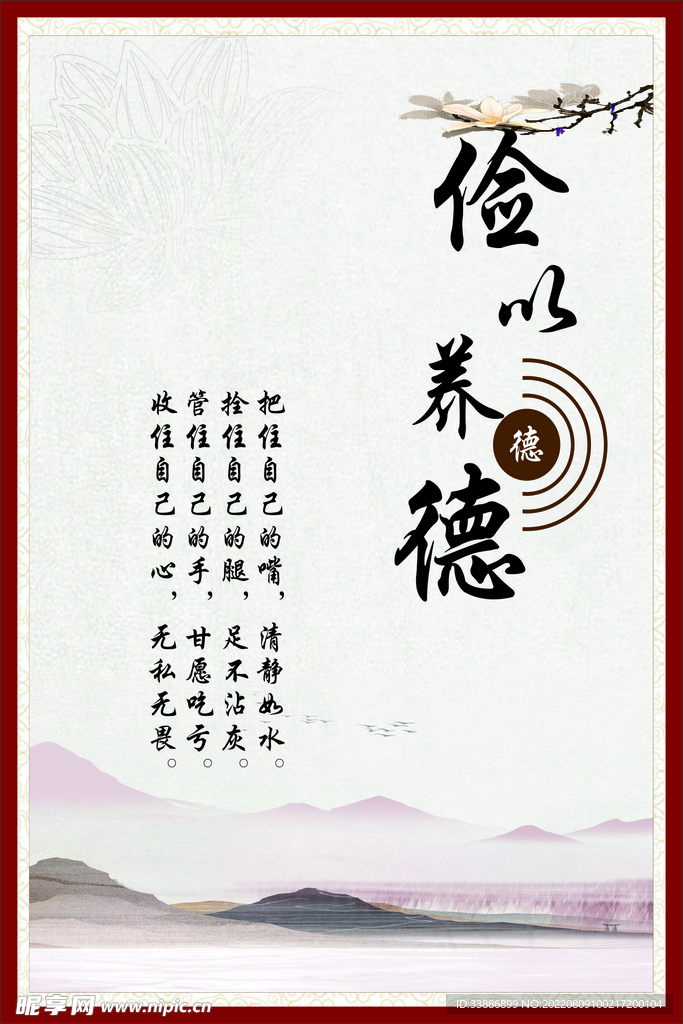 俭以养德
德
把住自己的嘴，清静如水。
拴住自己的腿，足不沾灰。
管住自己的手，甘愿吃亏。
收住自己的心，无私无畏。
昵享网 www.nipic.cn
ID:33886899 NO:20220809100217200104